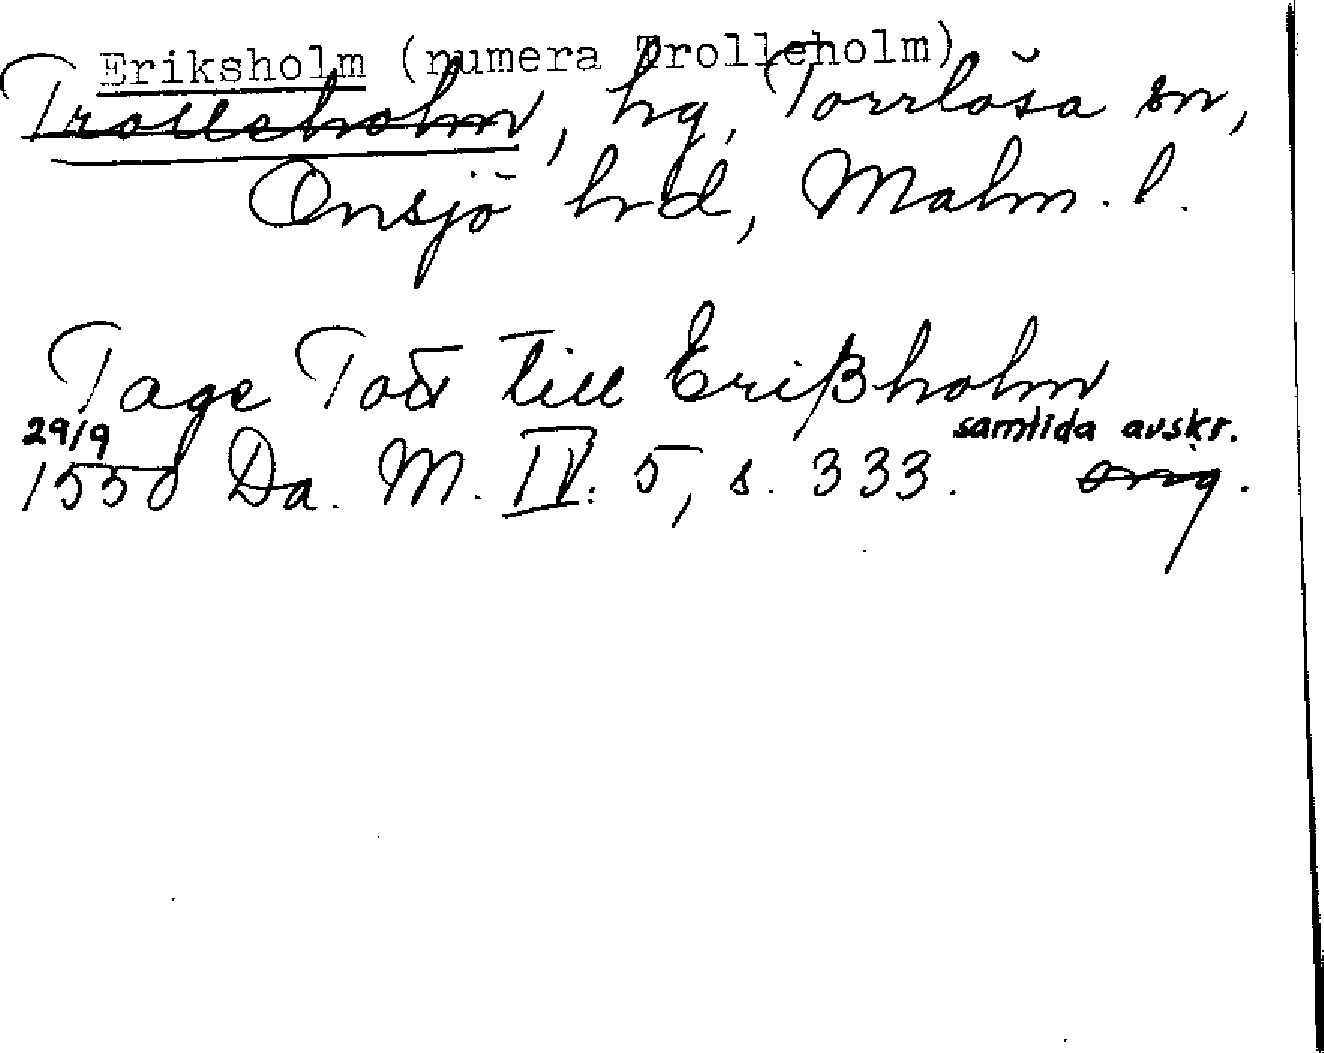 Eriksholm (numera Trolleholm)
Trolleholm, hg, Torrlösa sn,
Onsjö hd, Malm. l.
Tage Tott till Erißholm
29/9 samtida avskr.
1550 Da. M. IV: 5, s. 333. orig.